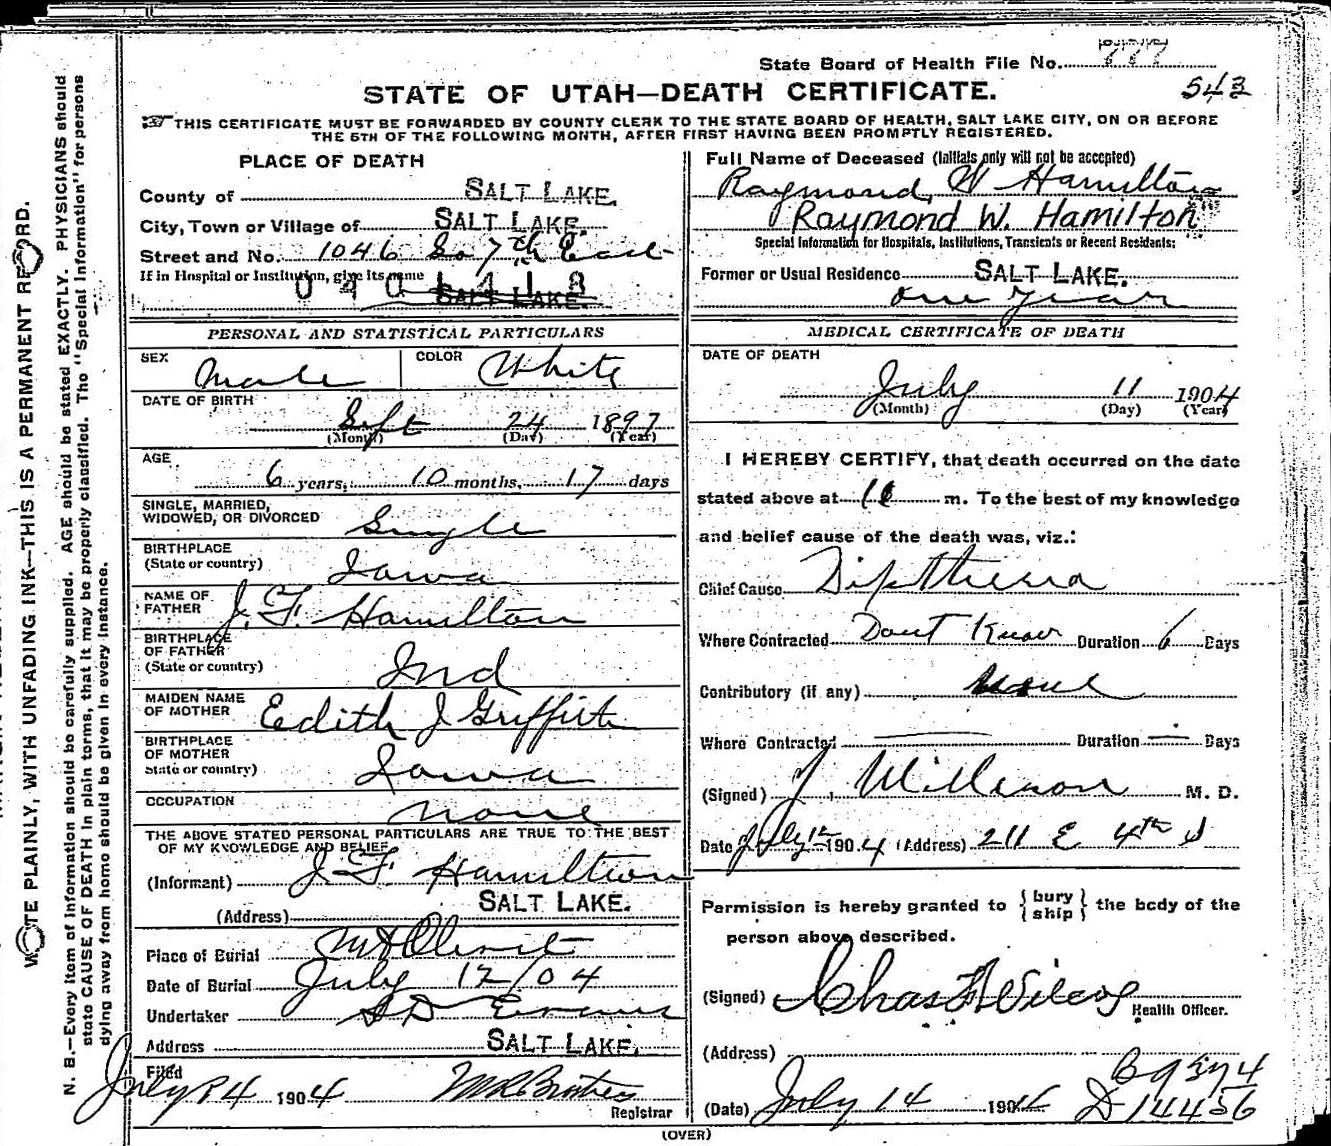 State Board of Health File No. 777
543
STATE OF UTAH—DEATH CERTIFICATE.
THIS CERTIFICATE MUST BE FORWARDED BY COUNTY CLERK TO THE STATE BOARD OF HEALTH, SALT LAKE CITY, ON OR BEFORE
THE 5TH OF THE FOLLOWING MONTH, AFTER FIRST HAVING BEEN PROMPTLY REGISTERED.
PLACE OF DEATH
County of SALT LAKE.
City, Town or Village of SALT LAKE.
Street and No. 1046 So 7th East
If in Hospital or Institution, give its name
SALT LAKE.
Full Name of Deceased (Initials only will not be accepted)
Raymond W Hamilton
Raymond W. Hamilton
Special Information for Hospitals, Institutions, Transients or Recent Residents:
Former or Usual Residence SALT LAKE.
one year
PERSONAL AND STATISTICAL PARTICULARS
SEX Male COLOR White
DATE OF BIRTH
Sept 24 1897
(Month) (Day) (Year)
AGE
6 years, 10 months, 17 days
SINGLE, MARRIED,
WIDOWED, OR DIVORCED Single
BIRTHPLACE
(State or country) Iowa
NAME OF
FATHER J. F. Hamilton
BIRTHPLACE
OF FATHER
(State or country) Ind
MAIDEN NAME
OF MOTHER Edith J Griffith
BIRTHPLACE
OF MOTHER
State or country) Iowa
OCCUPATION none
THE ABOVE STATED PERSONAL PARTICULARS ARE TRUE TO THE BEST
OF MY KNOWLEDGE AND BELIEF
(Informant) J. F. Hamilton
(Address) SALT LAKE.
Place of Burial Mt Olivet
Date of Burial July 12/04
Undertaker S D Evans
Address SALT LAKE.
Filed
July 14 1904
Registrar
MEDICAL CERTIFICATE OF DEATH
DATE OF DEATH
July 11 1904
(Month) (Day) (Year)
I HEREBY CERTIFY, that death occurred on the date
stated above at m. To the best of my knowledge
and belief cause of the death was, viz.:
Chief Cause Diptheria
Where Contracted Dont Know Duration 6 Days
Contributory (if any) None
Where Contracted — Duration — Days
(Signed) J. Willeson M. D.
Date July 12 1904 (Address) 211 E 4th S
Permission is hereby granted to { bury
ship } the body of the
person above described.
(Signed) Chas F Wilcox
Health Officer.
(Address)
(Date) July 14 190
B 9374
D 14456
(OVER)
WRITE PLAINLY, WITH UNFADING INK—THIS IS A PERMANENT RECORD.
N. B.—Every item of information should be carefully supplied. AGE should be stated EXACTLY. PHYSICIANS should
state CAUSE OF DEATH in plain terms, that it may be properly classified. The "Special Information" for persons
dying away from home should be given in every instance.